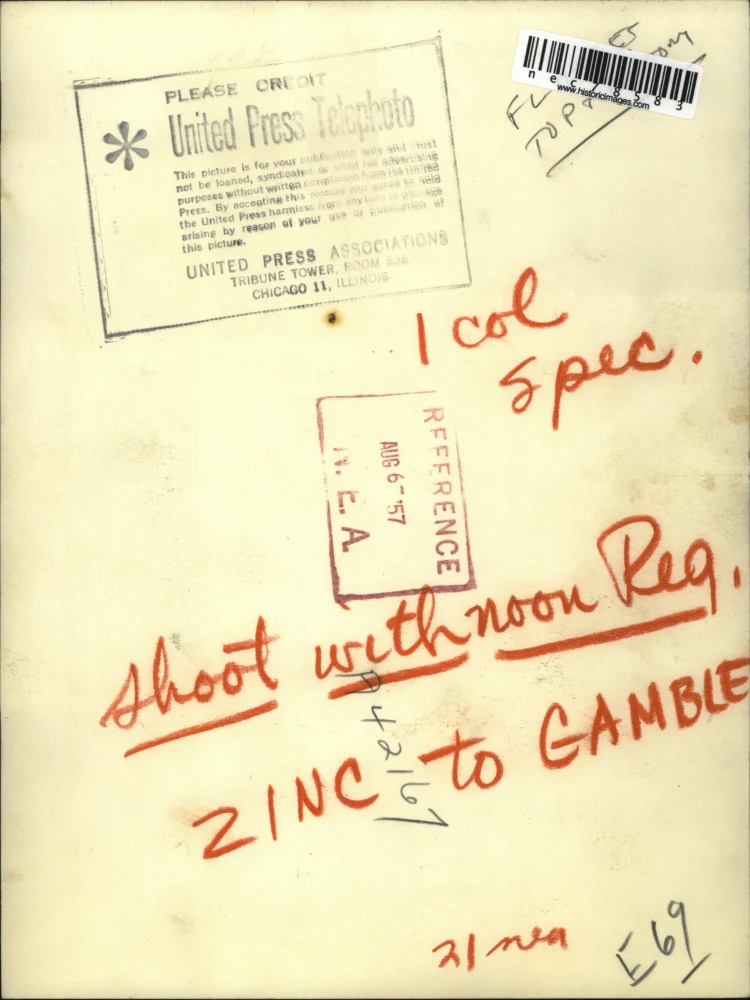 PLEASE CREDIT
* United Press Telephoto
This picture is for your publication only and must
not be loaned, syndicated or used for advertising
purposes without written permission from the United
Press. By accepting this picture you agree to hold
the United Press harmless from any loss or damage
arising by reason of your use or publication of
this picture.
UNITED PRESS ASSOCIATIONS
TRIBUNE TOWER, ROOM 638
CHICAGO 11, ILLINOIS
www.historicimages.com
TOP
1 col
Spec.
REFERENCE
AUG 6-'57
N. E. A.
shoot with noon Reg.
ZINC to GAMBLE
A42167
21 nea
E69